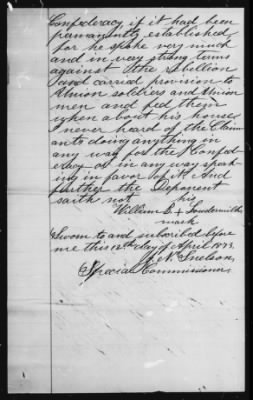 Confederacy if it had been
permanantly established
for he spoke very much
and in very strong terms
against the rebellion
and carried provision to
Union soldiers and Union
men and fed them
when about his house
I never heard of the Claim
ants doing anything in
any way for the Confed
eracy or in any way speak
ing in favor of it. And
further the Deponent
saith not
his
William L. + Loudermilk
mark
Sworn to and subscribed before
me this 12th day of April 1873.
N. Snelson
Special Commissioner